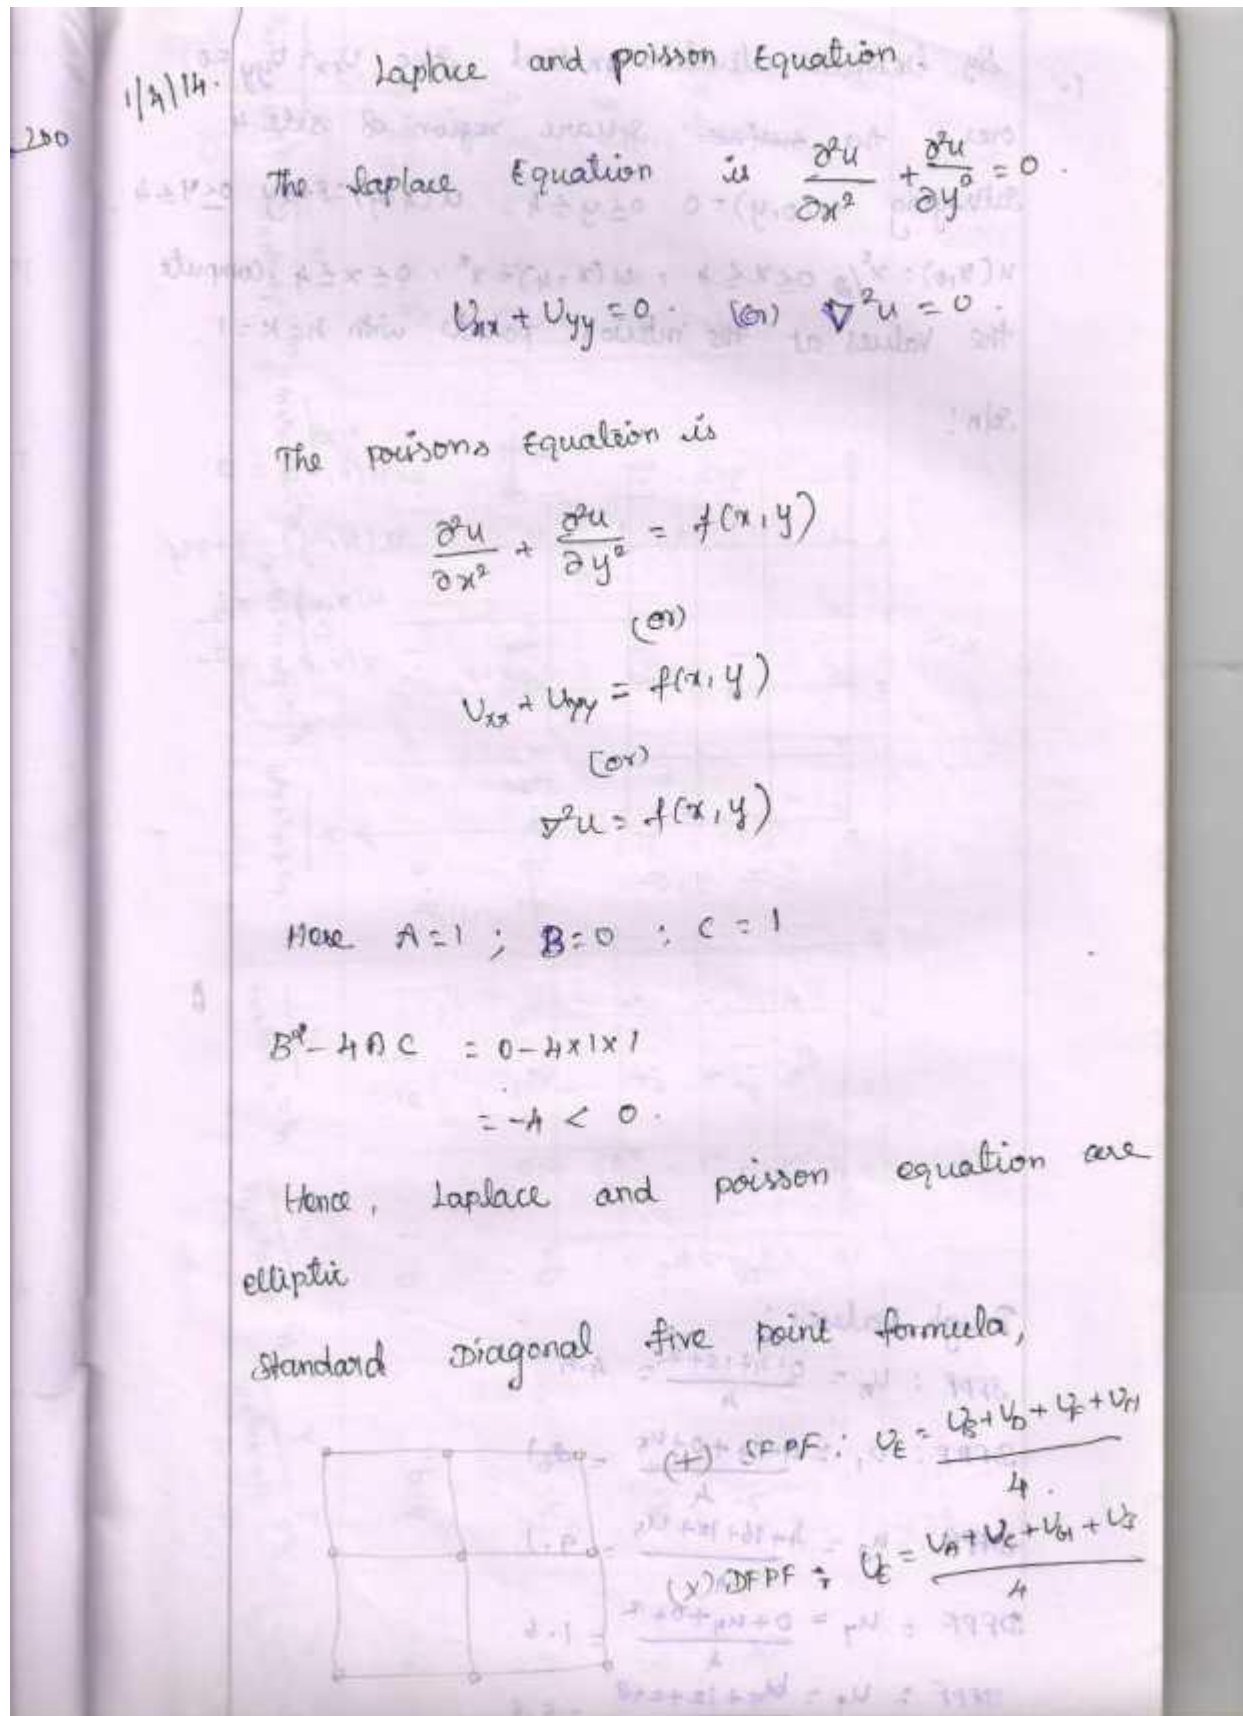 1/4/14.
Laplace and poisson Equation.
The Laplace Equation is ∂²u/∂x² + ∂²u/∂y² = 0.
Uxx + Uyy = 0. (or) ∇²u = 0.
The poisons Equation is
∂²u/∂x² + ∂²u/∂y² = f(x,y)
(or)
Uxx + Uyy = f(x,y)
(or)
∇²u = f(x,y)
Here A=1 ; B=0 ; C=1
B²-4AC = 0-4×1×1
= -4 < 0.
Hence, Laplace and poisson equation are
elliptic
Standard Diagonal five point formula,
(+) SFPF: UE = (UB+UD+UF+UH)/4.
(x) DFPF: UE = (UA+UC+UG+UI)/4